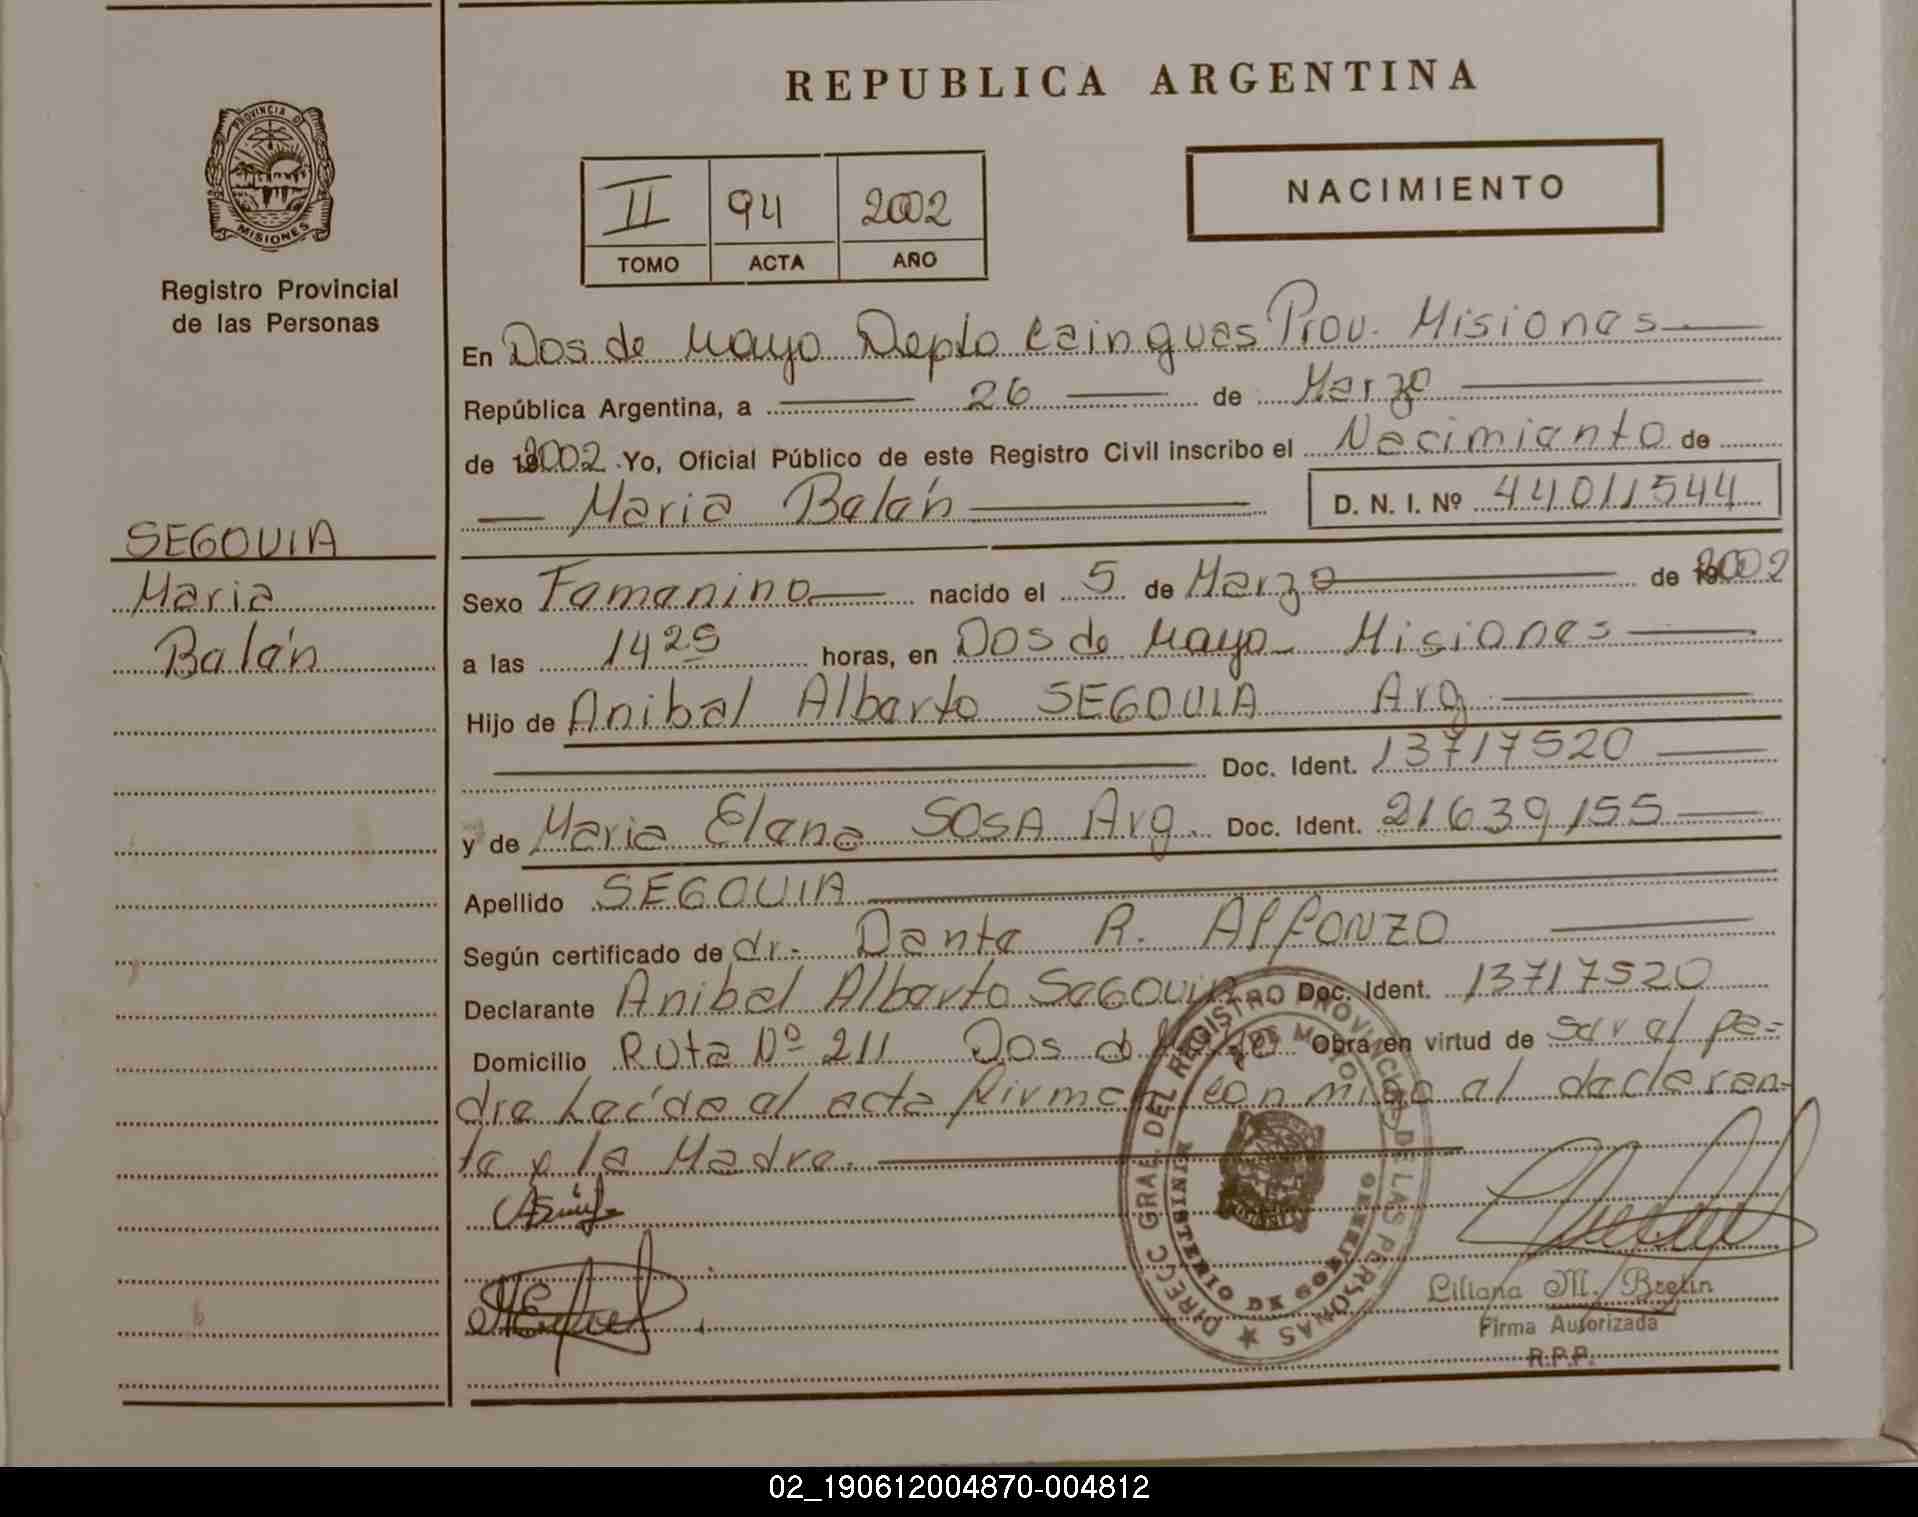 REPUBLICA ARGENTINA
PROVINCIA D
MISIONES
Registro Provincial
de las Personas
II 94 2002
TOMO ACTA AÑO
NACIMIENTO
En Dos de Mayo Depto Cainguas Prov. Misiones
República Argentina, a 26 de Marzo
de 2002 Yo, Oficial Público de este Registro Civil inscribo el Nacimiento de
Maria Belén D. N. I. Nº 44011544
SEGOVIA
Maria
Belén
Sexo Femenino nacido el 5 de Marzo de 2002
a las 14 25 horas, en Dos de Mayo Misiones
Hijo de Anibal Alberto SEGOVIA Arg
Doc. Ident. 13717520
y de Maria Elena SOSA Arg. Doc. Ident. 21639155
Apellido SEGOVIA
Según certificado de dr. Dante R. AlfONZO
Declarante Anibal Alberto SeGOVIA Doc. Ident. 13717520
Domicilio Ruta Nº 211 Dos de Mayo Obra en virtud de ser el pa=
dre Leída el acta firman conmigo el declaran-
te y la Madre.
DIRECC GRAL DEL REGISTRO PROVINCIAL DE LAS PERSONAS
MINISTERIO DE GOBIERNO
DOS DE MAYO
Liliana M. Bretin
Firma Autorizada
R.P.P.
02_190612004870-004812